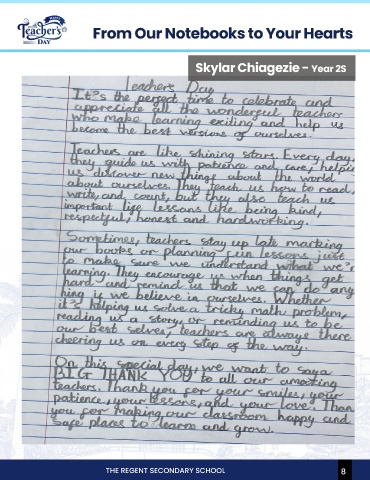 Teacher's
DAY
From Our Notebooks to Your Hearts
Skylar Chiagezie - Year 2S
Teachers Day
It's the perfect time to celebrate and
appreciate all the wonderful teachers
who make learning exciting and help us
become the best versions of ourselves.
Teachers are like shining stars. Every day,
they guide us with patience and care, helpin
us discover new things about the world
about ourselves. They teach us how to read,
write, and count, but they also teach us
important life lessons like being kind,
respectful, honest and hardworking.
Sometimes, teachers stay up late marking
our books or planning fun lessons just
to make sure we understand what we'r
learning. They encourage us when things get
hard and remind us that we can do any
thing is we believe in ourselves. Whether
it's helping us solve a tricky math problem,
reading us a story, or reminding us to be
our best selves, teachers are always there
cheering us on every step of the way.
On this special day, we want to say a
BIG THANK YOU to all our amazing
teachers. Thank you for your smiles, your
patience, your lessons, and your love. Than
you for making our classroom happy and
safe places to learn and grow.
THE REGENT SECONDARY SCHOOL
8